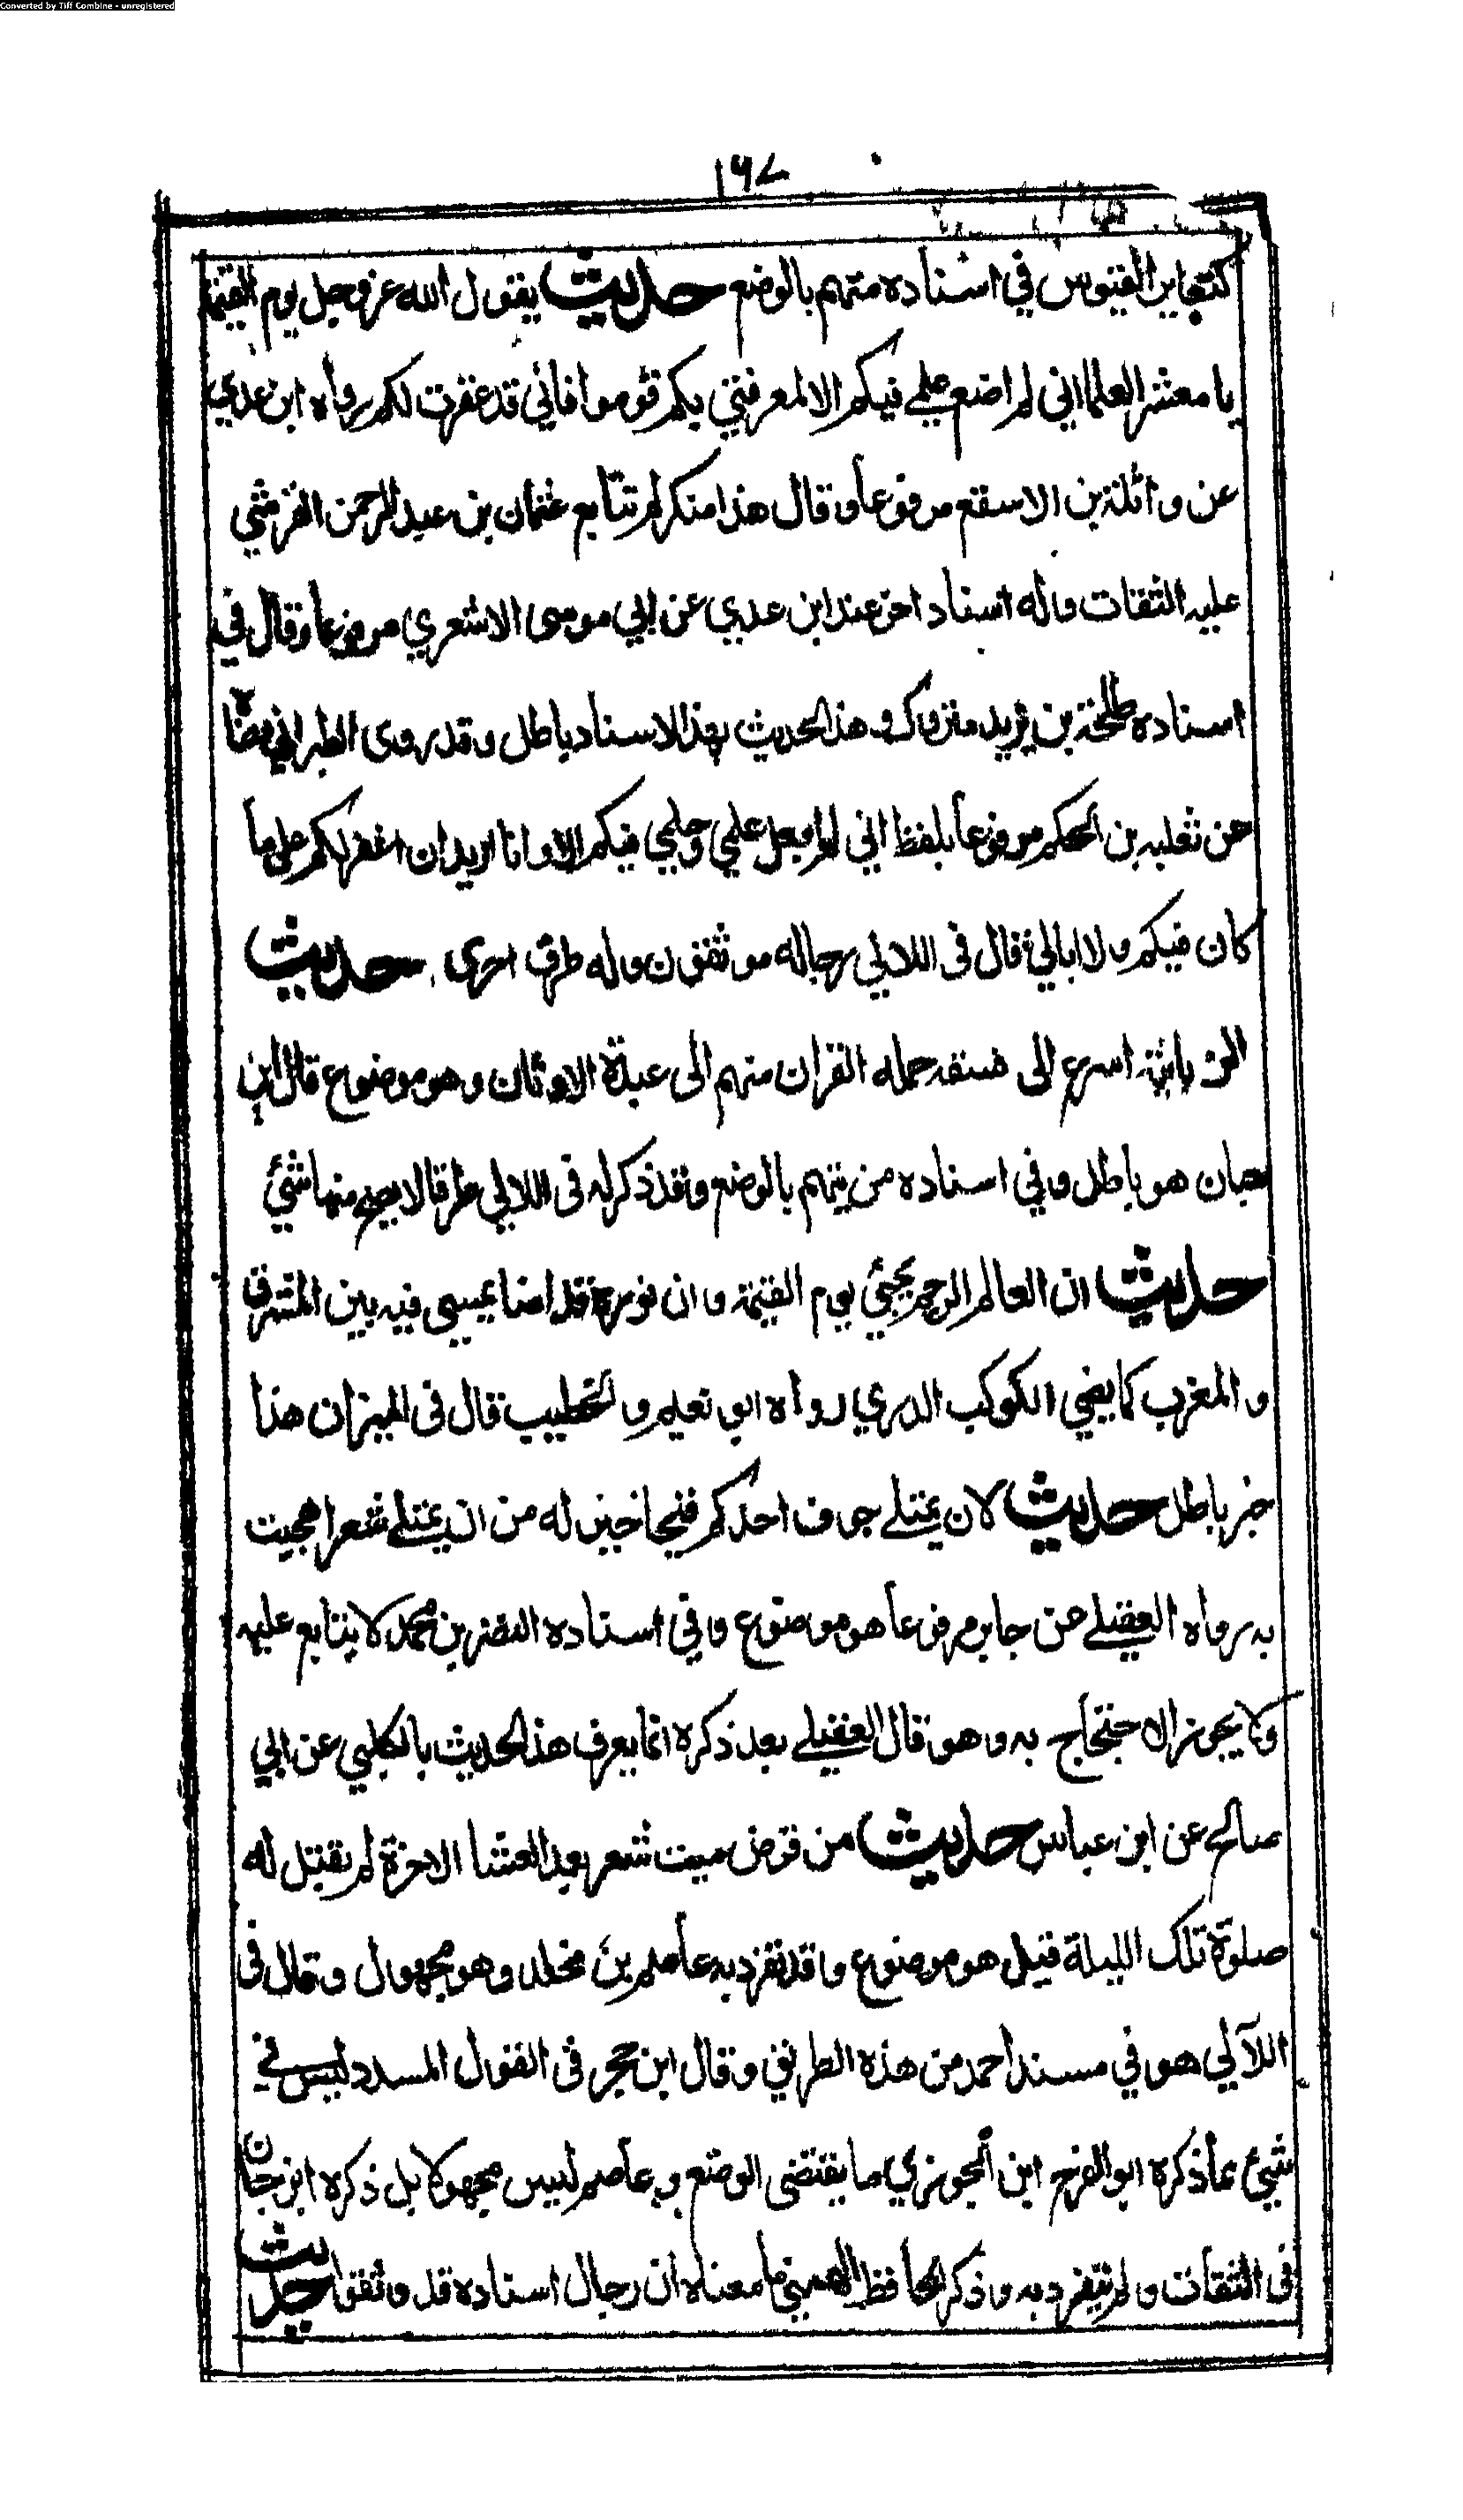 Converted by Tiff Combine - unregistered
١٦٧
في اسناده متهم بالوضع حديث يقول الله عز وجل يوم القيمة
يا معشر العلما اني لم اضع علمي فيكم الا لمعرفتي بكم قوموا فاني قد غفرت لكم رواه ابن عدي
عن واثلة بن الاسقع مرفوعا وقال هذا منكر لم يتابع عثمان بن عبد الرحمن القرشي
عليه الثقات وله اسناد اخر عند ابن عدي عن ابي موسى الاشعري مرفوعا وقال في
اسناده طلحة بن يزيد متروك وهذا الحديث بهذا الاسناد باطل وقد روى الطبراني
عن ثعلبه بن الحكم مرفوعا بلفظ اني لم اجعل علمي وحلمي فيكم الا وانا اريد ان اغفر لكم على ما
كان فيكم ولا ابالي قال في اللالي رجاله موثقون وله طرق اخرى حديث
الزبانية اسرع الى فسقه حمله القران منهم الى عبدة الاوثان وهو موضوع قال ابن
حبان هو باطل وفي اسناده من يتهم بالوضع وقد ذكر له في اللالي طرقا لا يصح منها شئ
حديث ان العالم الرحيم يجئ يوم القيمة وان نوره قد اضا يمسي فيه بين المشرق
و المغرب كما يضي الكوكب الدري رواه ابو نعيم والخطيب قال في الميزان هذا
خبر باطل حديث لان يمتلے جوف احدكم قيحا خير له من ان يمتلے شعرا هجيت
به رواه العقيلے عن جابر مرفوعا هو موضوع وفي اسناده النضر بن محمد لا يتابع عليه
ولا يجوز الاحتجاج به وهو قال العقيلے بعد ذكره انما يعرف هذا الحديث بالكلبي عن ابي
صالح عن ابن عباس حديث من قرض بيت شعر بعد العشا الاخرة لم يقبل له
صلوة تلك الليلة قيل هو موضوع وقد تفرد به عاصم بن مخلد وهو مجهول وقال في
اللآلي هو في مسند احمد من هذه الطريق وقال ابن حجر في القول المسدد ليس في
شيئ مما ذكره ابو الفرج ابن الجوزي ما يقتضى الوضع و عاصم ليس مجهولا بل ذكره ابن حبان
في الثقات ولم يتفرد به وذكر الحافظ الهيثمي ما معناه ان رجال اسناده قد وثقوا حديث